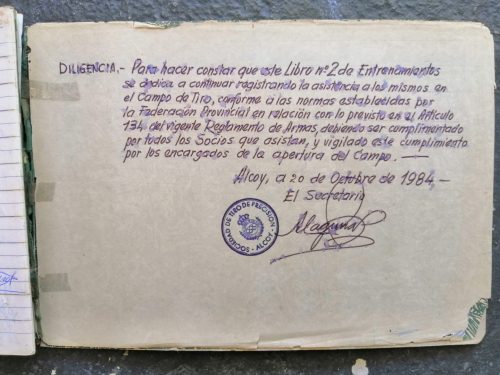 DILIGENCIA.- Para hacer constar que este Libro nº 2 de Entrenamientos
se dedica a continuar registrando la asistencia a los mismos en
el Campo de Tiro, conforme a las normas establecidas por
la Federación Provincial en relación con lo previsto en el Artículo
134 del vigente Reglamento de Armas, debiendo ser cumplimentado
por todos los Socios que asistan, y vigilado este cumplimiento
por los encargados de la apertura del Campo. —
Alcoy, a 20 de Octubre de 1984,-
El Secretario
SOCIEDAD DE TIRO DE PRECISION
- ALCOY -